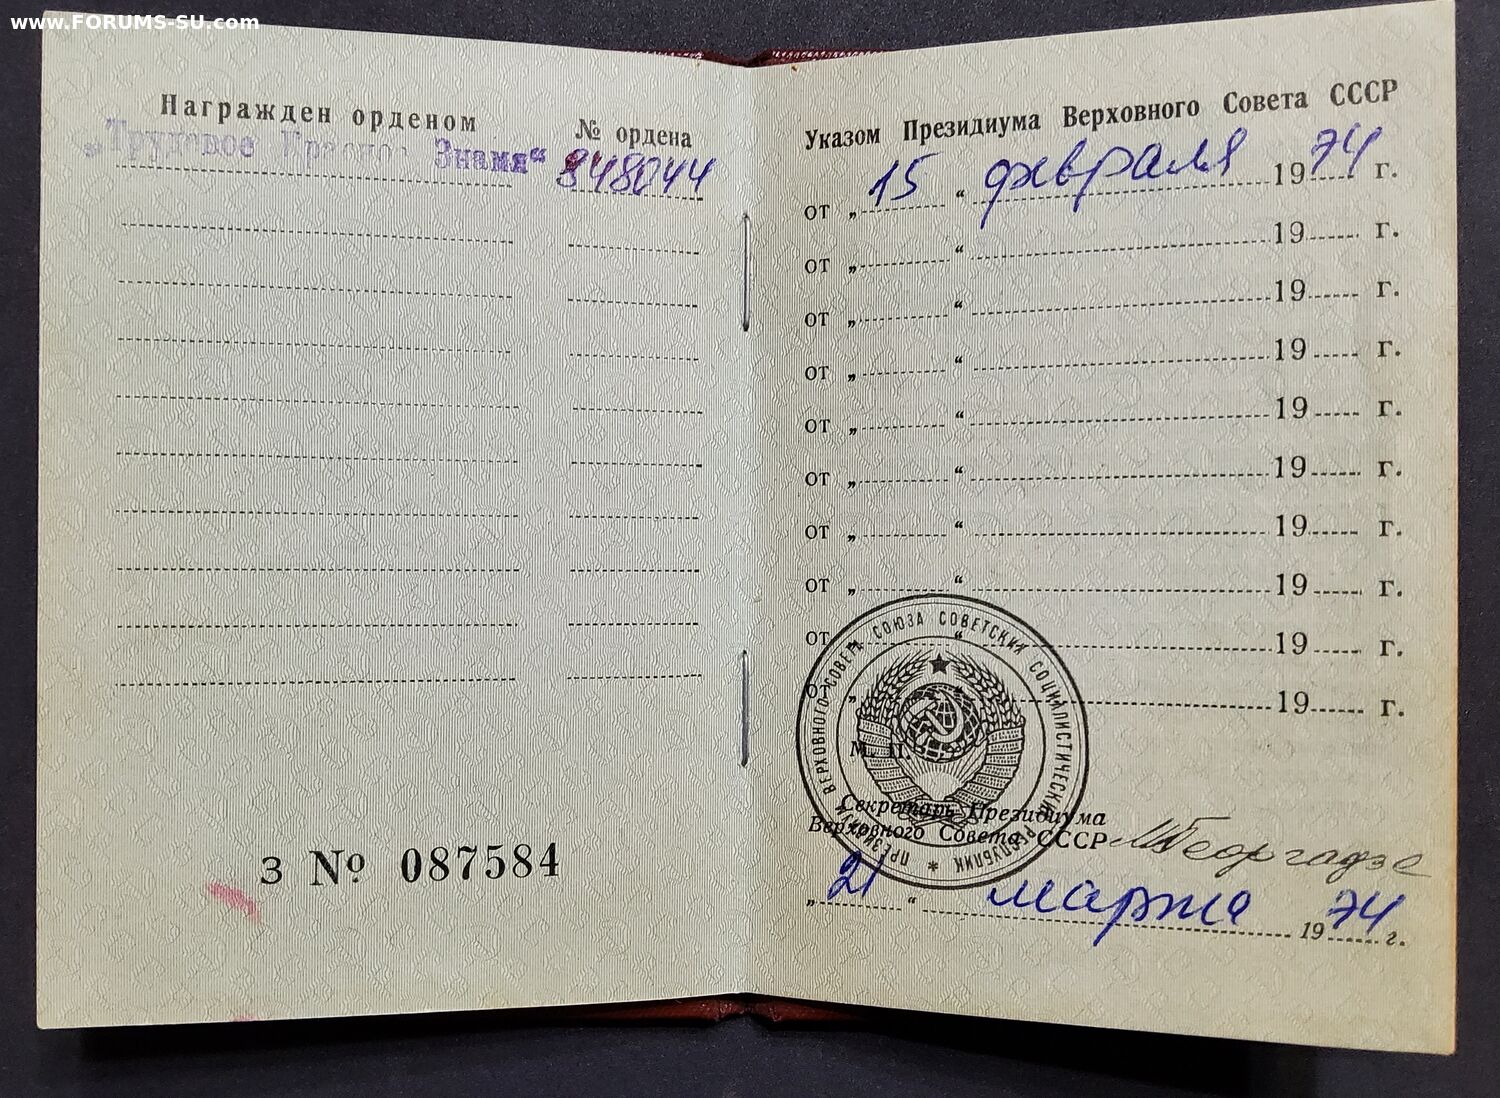 www.FORUMS-SU.com
Награжден орденом
№ ордена
„Трудовое Красное Знамя“
848044
З № 087584
Указом Президиума Верховного Совета СССР
от „ 15 “ февраля 1974 г.
от „ “ 19 г.
от „ “ 19 г.
от „ “ 19 г.
от „ “ 19 г.
от „ “ 19 г.
от „ “ 19 г.
от „ “ 19 г.
от „ “ 19 г.
от „ “ 19 г.
ПРЕЗИДИУМ ВЕРХОВНОГО СОВЕТА СОЮЗА СОВЕТСКИХ СОЦИАЛИСТИЧЕСКИХ РЕСПУБЛИК *
М. П.
Секретарь Президиума
Верховного Совета СССР МГеоргадзе
„ 21 “ марта 1974 г.